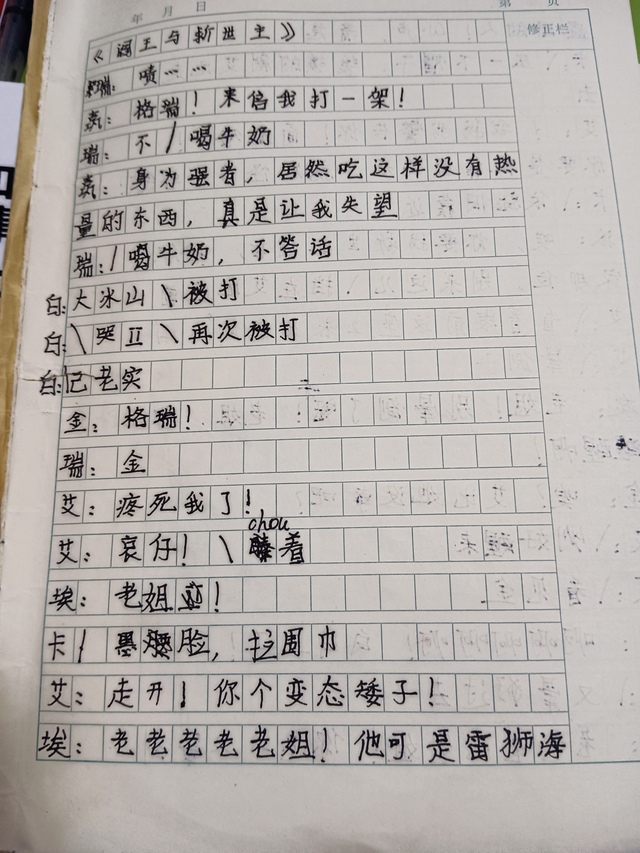 年 月 日 第 页
修正栏
《阎王与新世主》
瑞：喷……
嘉：格瑞！来信我打一架！
瑞：不/喝牛奶
嘉：身为强者，居然吃这样没有热
量的东西，真是让我失望
瑞：/喝牛奶，不答话
白：大冰山\被打
白：\哭Ⅱ\再次被打
白：已老实
金：格瑞！
瑞：金
艾：疼死我了！
chou
艾：衰仔！\着
埃：老姐！
卡/墨脸，拉围巾
艾：走开！你个变态矮子！
埃：老老老老老姐！他可是雷狮海